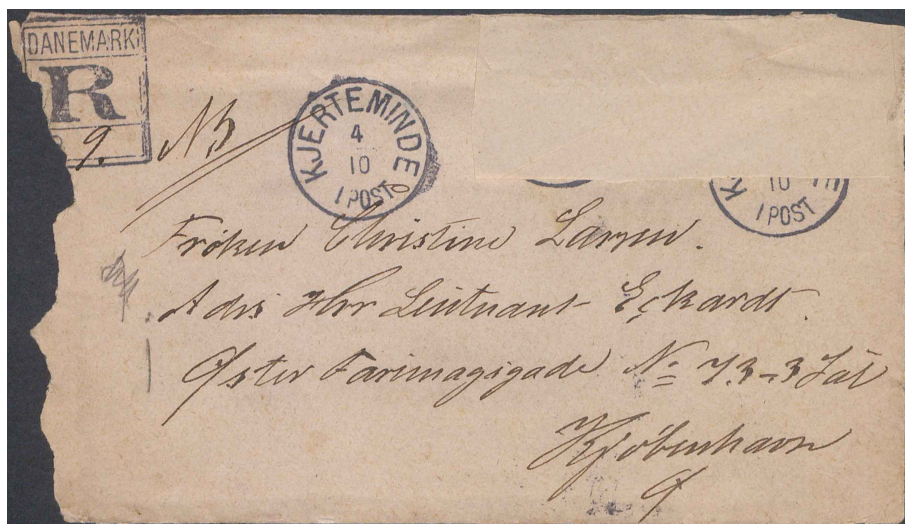 DANEMARK
R
9. No
KJERTEMINDE
4
10
I POST
K
10
I POST
Frøken Christine Larsen.
Adrs Hrr Leutnant Eckardt.
Øster Farimagsgade No 73-3 Sal
Kjøbenhavn
Ø